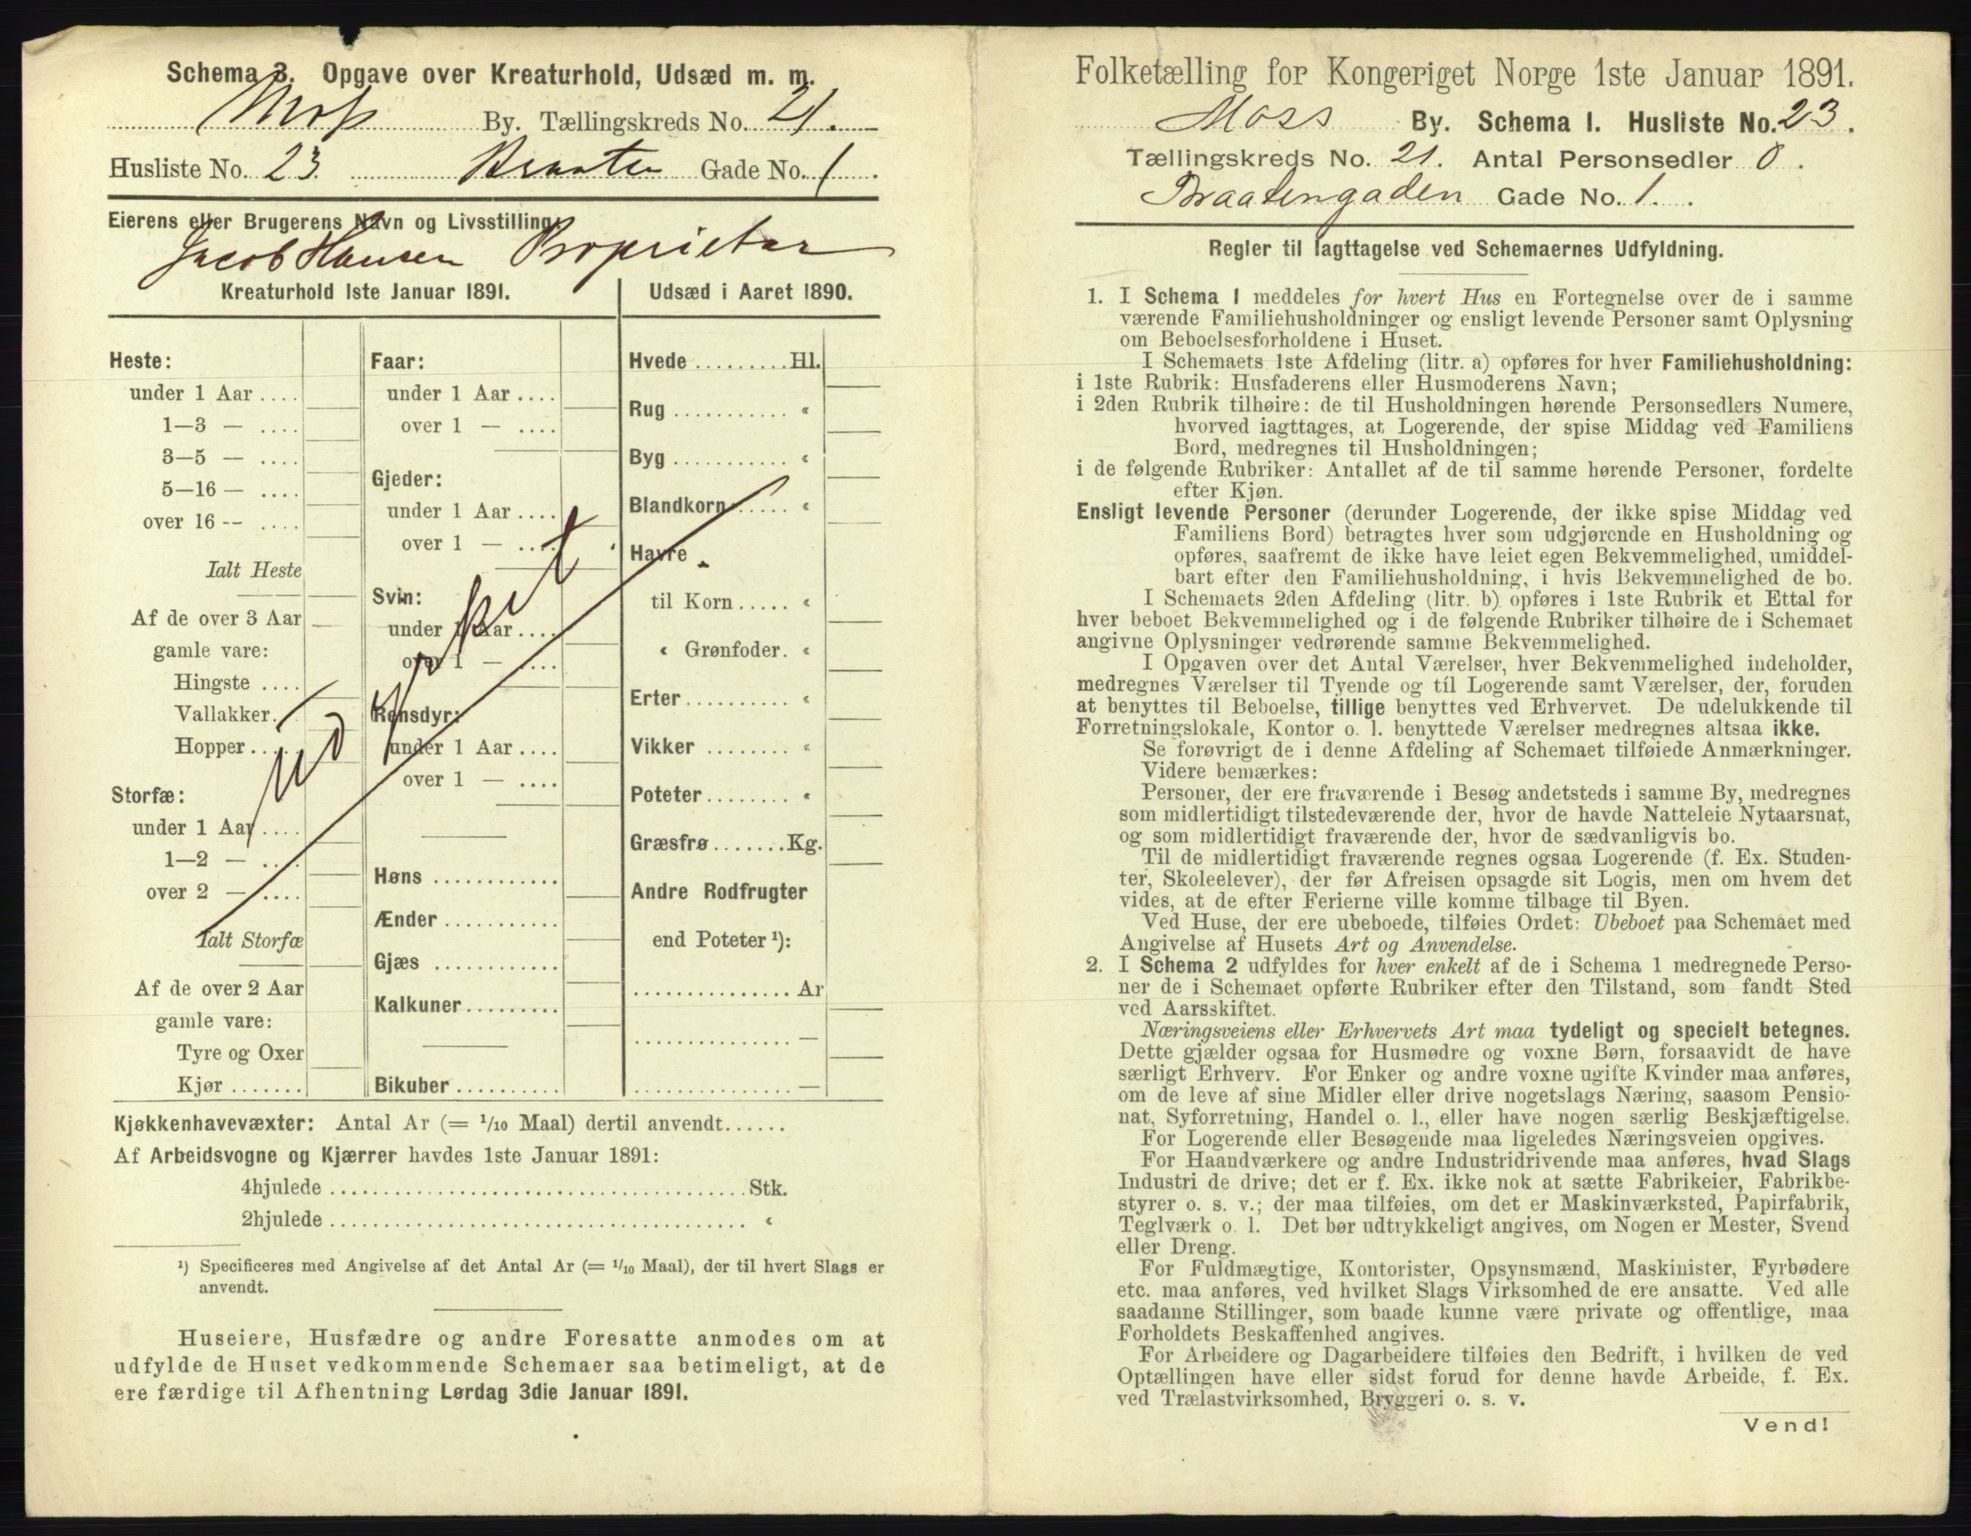 Schema 3. Opgave over Kreaturhold, Udsæd m. m.
Moss By. Tællingskreds No. 21.
Husliste No. 23 Braaten Gade No. 1.
Eierens eller Brugerens Navn og Livsstilling:
Jacob Hansen Proprietær
Kreaturhold 1ste Januar 1891.
Heste:
under 1 Aar ....
1—3 — ....
3—5 — ....
5—16 — ....
over 16 -- ....
Ialt Heste
Af de over 3 Aar
gamle vare:
Hingste ....
Vallakker....
Hopper....
Storfæ:
under 1 Aar ....
1—2 — ....
over 2 — ....
Ialt Storfæ
Af de over 2 Aar
gamle vare:
Tyre og Oxer
Kjør.......
Faar:
under 1 Aar ....
over 1 — ....
Gjeder:
under 1 Aar ....
over 1 — ....
Svin:
under 1 Aar ....
over 1 — ....
Rensdyr:
under 1 Aar ....
over 1 — ....
Høns ............
Ænder ...........
Gjæs ............
Kalkuner.........
Bikuber..........
Udsæd i Aaret 1890.
Hvede .........Hl.
Rug ........... «
Byg ........... «
Blandkorn...... «
Havre
til Korn ..... «
« Grønfoder. «
Erter.......... «
Vikker ........ «
Poteter........ «
Græsfrø.......Kg.
Andre Rodfrugter
end Poteter ¹):
............... Ar
............... —
............... —
Kjøkkenhavevæxter: Antal Ar (= 1/10 Maal) dertil anvendt......
Af Arbeidsvogne og Kjærrer havdes 1ste Januar 1891:
4hjulede ........................................Stk.
2hjulede ........................................ «
¹) Specificeres med Angivelse af det Antal Ar (= 1/10 Maal), der til hvert Slags er
anvendt.
Huseiere, Husfædre og andre Foresatte anmodes om at
udfylde de Huset vedkommende Schemaer saa betimeligt, at de
ere færdige til Afhentning Lørdag 3die Januar 1891.
Folketælling for Kongeriget Norge 1ste Januar 1891.
Moss By. Schema I. Husliste No. 23.
Tællingskreds No. 21. Antal Personsedler 0.
Braatengaden Gade No. 1.
Regler til Iagttagelse ved Schemaernes Udfyldning.
1. I Schema I meddeles for hvert Hus en Fortegnelse over de i samme
værende Familiehusholdninger og ensligt levende Personer samt Oplysning
om Beboelsesforholdene i Huset.
I Schemaets 1ste Afdeling (litr. a) opføres for hver Familiehusholdning:
i 1ste Rubrik: Husfaderens eller Husmoderens Navn;
i 2den Rubrik tilhøire: de til Husholdningen hørende Personsedlers Numere,
hvorved iagttages, at Logerende, der spise Middag ved Familiens
Bord, medregnes til Husholdningen;
i de følgende Rubriker: Antallet af de til samme hørende Personer, fordelte
efter Kjøn.
Ensligt levende Personer (derunder Logerende, der ikke spise Middag ved
Familiens Bord) betragtes hver som udgjørende en Husholdning og
opføres, saafremt de ikke have leiet egen Bekvemmelighed, umiddel-
bart efter den Familiehusholdning, i hvis Bekvemmelighed de bo.
I Schemaets 2den Afdeling (litr. b) opføres i 1ste Rubrik et Ettal for
hver beboet Bekvemmelighed og i de følgende Rubriker tilhøire de i Schemaet
angivne Oplysninger vedrørende samme Bekvemmelighed.
I Opgaven over det Antal Værelser, hver Bekvemmelighed indeholder,
medregnes Værelser til Tyende og til Logerende samt Værelser, der, foruden
at benyttes til Beboelse, tillige benyttes ved Erhvervet. De udelukkende til
Forretningslokale, Kontor o. l. benyttede Værelser medregnes altsaa ikke.
Se forøvrigt de i denne Afdeling af Schemaet tilføiede Anmærkninger.
Videre bemærkes:
Personer, der ere fraværende i Besøg andetsteds i samme By, medregnes
som midlertidigt tilstedeværende der, hvor de havde Natteleie Nytaarsnat,
og som midlertidigt fraværende der, hvor de sædvanligvis bo.
Til de midlertidigt fraværende regnes ogsaa Logerende (f. Ex. Studen-
ter, Skoleelever), der før Afreisen opsagde sit Logis, men om hvem det
vides, at de efter Ferierne ville komme tilbage til Byen.
Ved Huse, der ere ubeboede, tilføies Ordet: Ubeboet paa Schemaet med
Angivelse af Husets Art og Anvendelse.
2. I Schema 2 udfyldes for hver enkelt af de i Schema 1 medregnede Perso-
ner de i Schemaet opførte Rubriker efter den Tilstand, som fandt Sted
ved Aarsskiftet.
Næringsveiens eller Erhvervets Art maa tydeligt og specielt betegnes.
Dette gjælder ogsaa for Husmødre og voxne Børn, forsaavidt de have
særligt Erhverv. For Enker og andre voxne ugifte Kvinder maa anføres,
om de leve af sine Midler eller drive nogetslags Næring, saasom Pensio-
nat, Syforretning, Handel o. l., eller have nogen særlig Beskjæftigelse.
For Logerende eller Besøgende maa ligeledes Næringsveien opgives.
For Haandværkere og andre Industridrivende maa anføres, hvad Slags
Industri de drive; det er f. Ex. ikke nok at sætte Fabrikeier, Fabrikbe-
styrer o. s. v.; der maa tilføies, om det er Maskinværksted, Papirfabrik,
Teglværk o. l. Det bør udtrykkeligt angives, om Nogen er Mester, Svend
eller Dreng.
For Fuldmægtige, Kontorister, Opsynsmænd, Maskinister, Fyrbødere
etc. maa anføres, ved hvilket Slags Virksomhed de ere ansatte. Ved alle
saadanne Stillinger, som baade kunne være private og offentlige, maa
Forholdets Beskaffenhed angives.
For Arbeidere og Dagarbeidere tilføies den Bedrift, i hvilken de ved
Optællingen have eller sidst forud for denne havde Arbeide, f. Ex.
ved Trælastvirksomhed, Bryggeri o. s. v.
Vend!